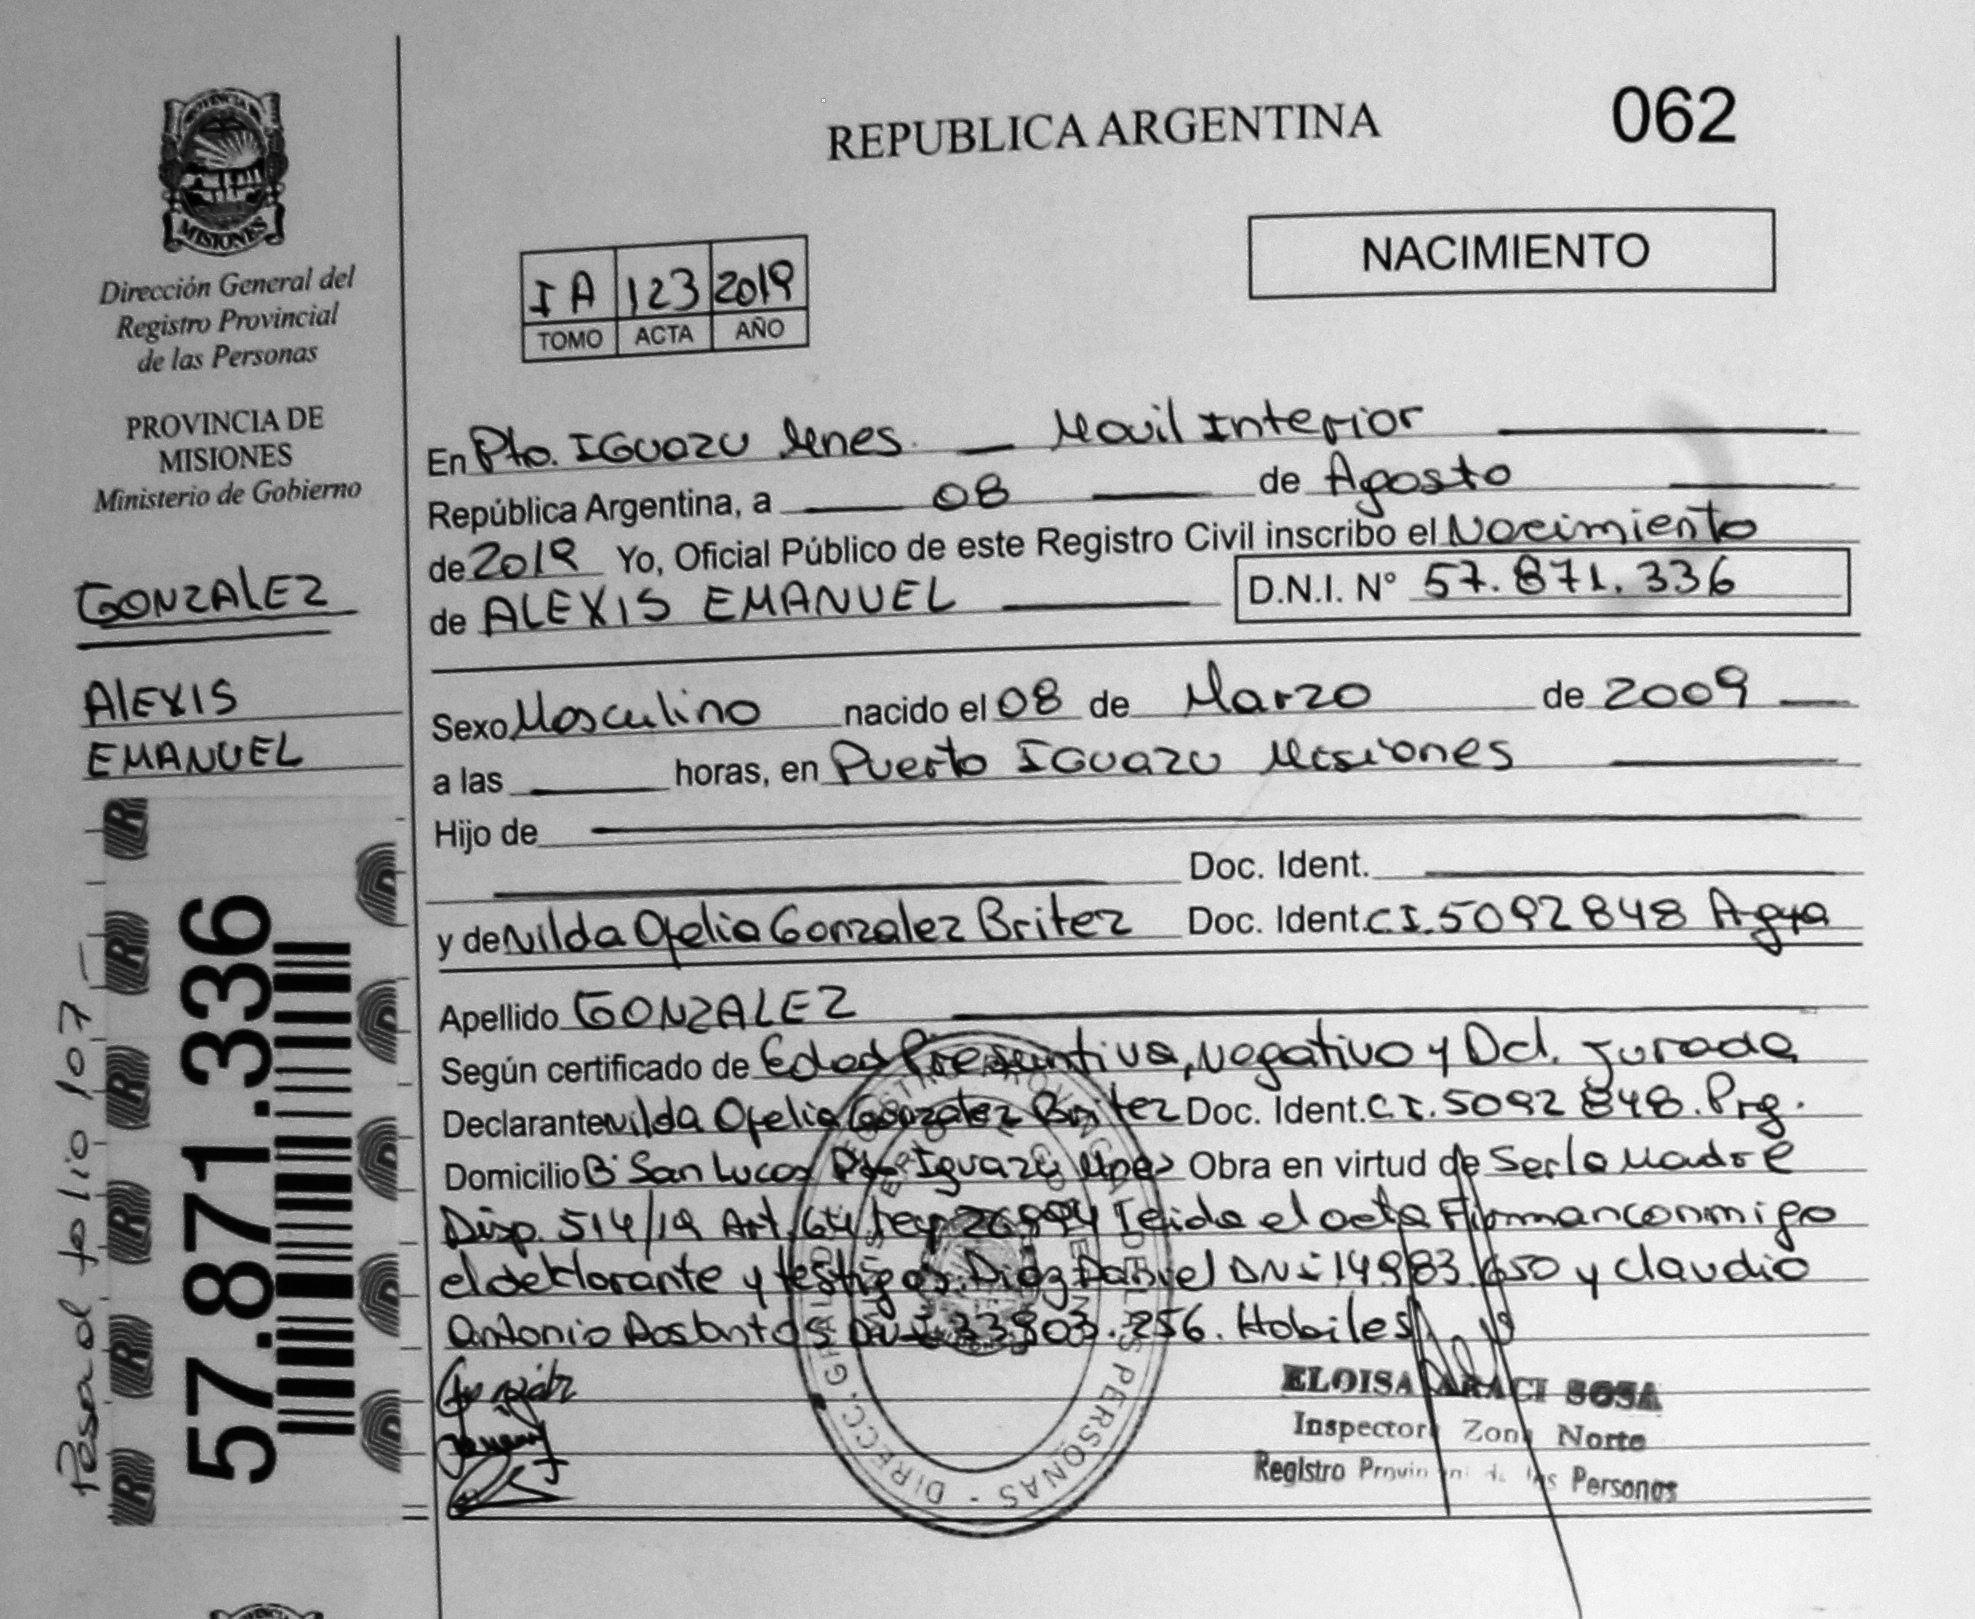 PROVINCIA DE
MISIONES
Dirección General del
Registro Provincial
de las Personas
PROVINCIA DE
MISIONES
Ministerio de Gobierno
GONZALEZ
ALEXIS
EMANUEL
57.871.336
Pasa al folio 107
REPUBLICA ARGENTINA
062
NACIMIENTO
I A 123 2019
TOMO ACTA AÑO
En Pto. IGUAZU Mnes. Movil Interior
República Argentina, a 08 de Agosto
de 2019 Yo, Oficial Público de este Registro Civil inscribo el Nacimiento
de ALEXIS EMANUEL D.N.I. N° 57.871.336
Sexo Masculino nacido el 08 de Marzo de 2009
a las horas, en Puerto IGUAZU Misiones
Hijo de
Doc. Ident.
y de Nilda Ofelia Gonzalez Britez Doc. Ident. C.I. 5092848
Apellido GONZALEZ
Según certificado de Edad Presuntiva, Negativo y Dcl. Jurada
Declarante Nilda Ofelia Gonzalez Britez Doc. Ident. C.I. 5092848. Prg.
Domicilio B° San Lucas Pto Iguazu Mnes Obra en virtud de Ser la Madre
Disp. 514/19 Art. 64 Ley 26994 Leida el acta Firman conmigo
el deklorante y testigos. Diaz Daniel DNI 14983.650 y Claudio
Antonio DNI 33903.256. Habiles
ELOISA ARACI SOSA
Inspectora Zona Norte
Registro Provincial de las Personas